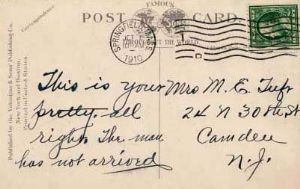 FAMOUS
POST CARD
Correspondence
Published by The Valentine & Sons' Publishing Co.
New York and Boston.
Printed in United States.
SPRINGFIELD, MASS.
1910
This is your
pretty. all
right. The man
has not arrived
Mrs M. E. Tuft
24 N 30th St
Camden
N. J.